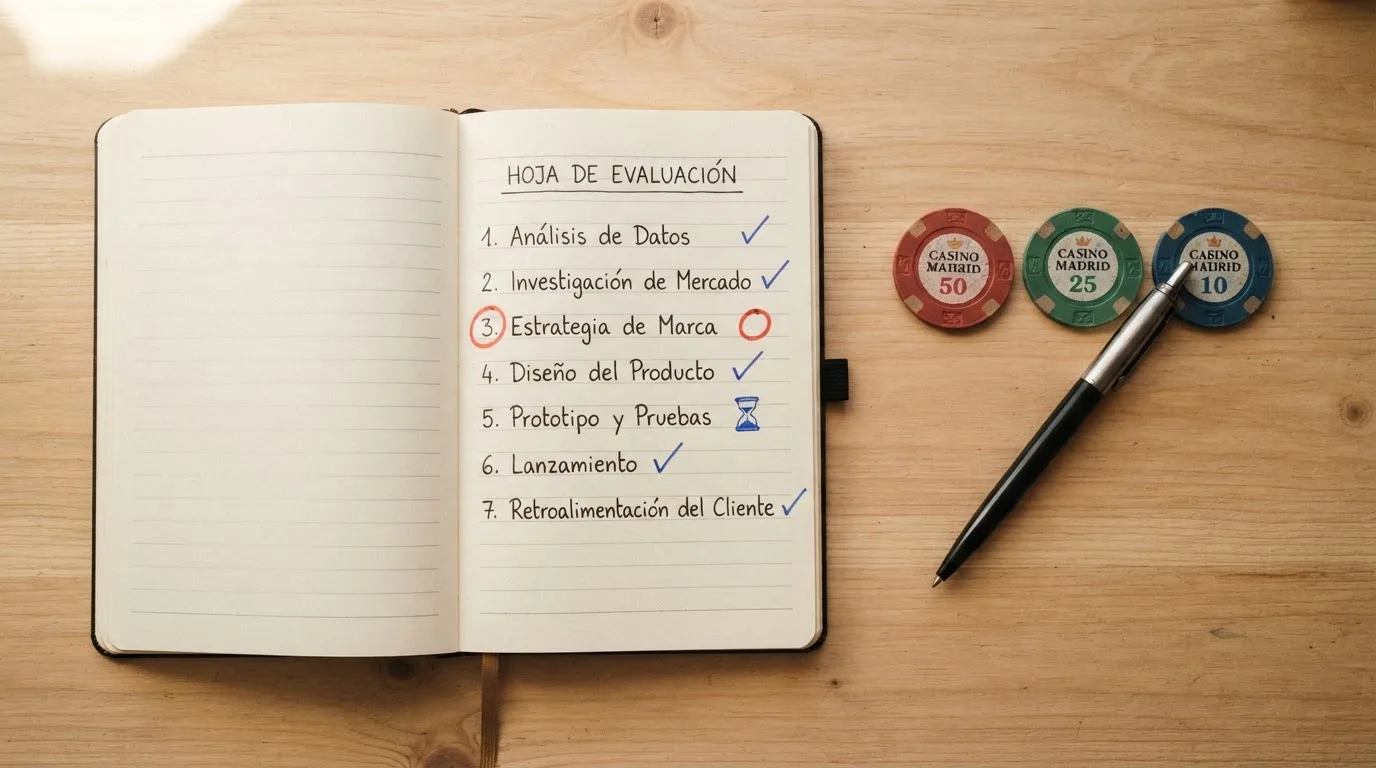 HOJA DE EVALUACIÓN
1. Análisis de Datos
2. Investigación de Mercado
3. Estrategia de Marca
4. Diseño del Producto
5. Prototipo y Pruebas
6. Lanzamiento
7. Retroalimentación del Cliente
CASINO
50
CASINO
MADRID
25
10